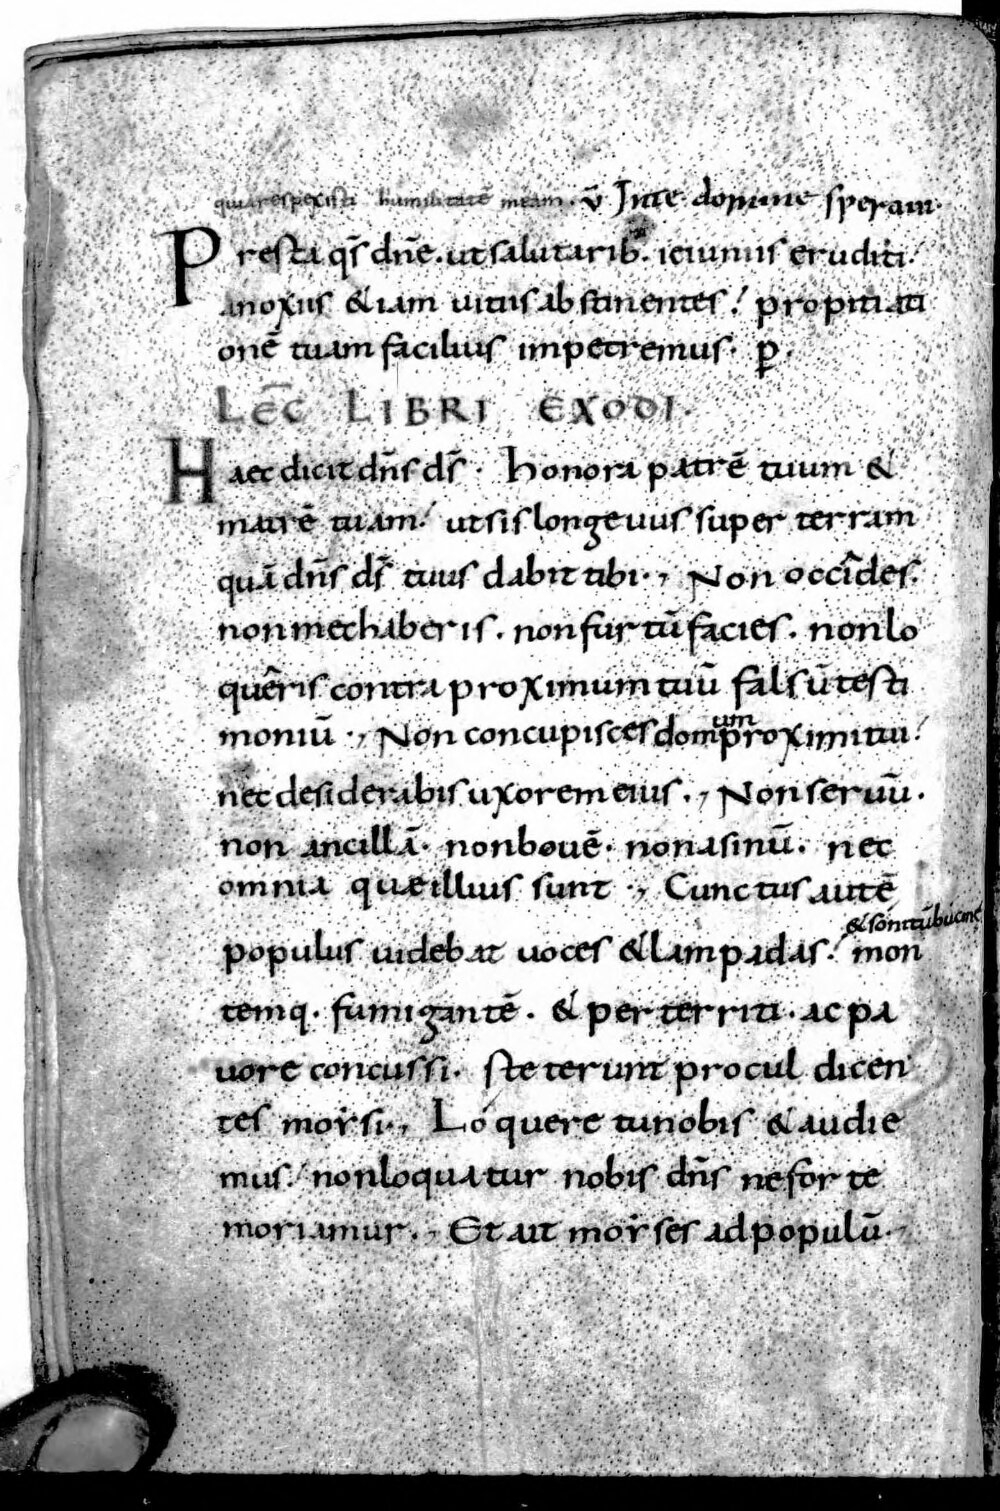 quia respexisti humilitatē meam. v̄ Inte domine speraui.
Presta qs̄ dn̄e. ut salutarib. ieiuniis eruditi.
anoxiis &iam uitiis abstinentes! propitiati
onē tuam facilius impetremus. p̄.
LEC̄ LIBRI EXODI.
Haec dicit dn̄s ds̄. Honora patrē tuum &
matrē tuam! ut sis longeuus super terram
quā dn̄s ds̄ tuus dabit tibi., Non occîdes.
non mechaberis. non furtū facies. non lo
quêris contra proximum tuū falsū testi
moniū., Non concupisces dom proximi tui!
um
nec desiderabis uxorem eius., Non seruū.
non ancillā. non bouē. non asinū. nec
omnia quae illius sunt., Cunctus autē
& sonitū bucine
populus uidebat uoces & lampadas! mon
temq. fumigantē. & perterriti. ac pa
uore concussi. steterunt procul dicen
tes moẏsi., Loquere tu nobis & audie
mus! non loquatur nobis dn̄s ne forte
moriamur., Et ait moẏses ad populū.,